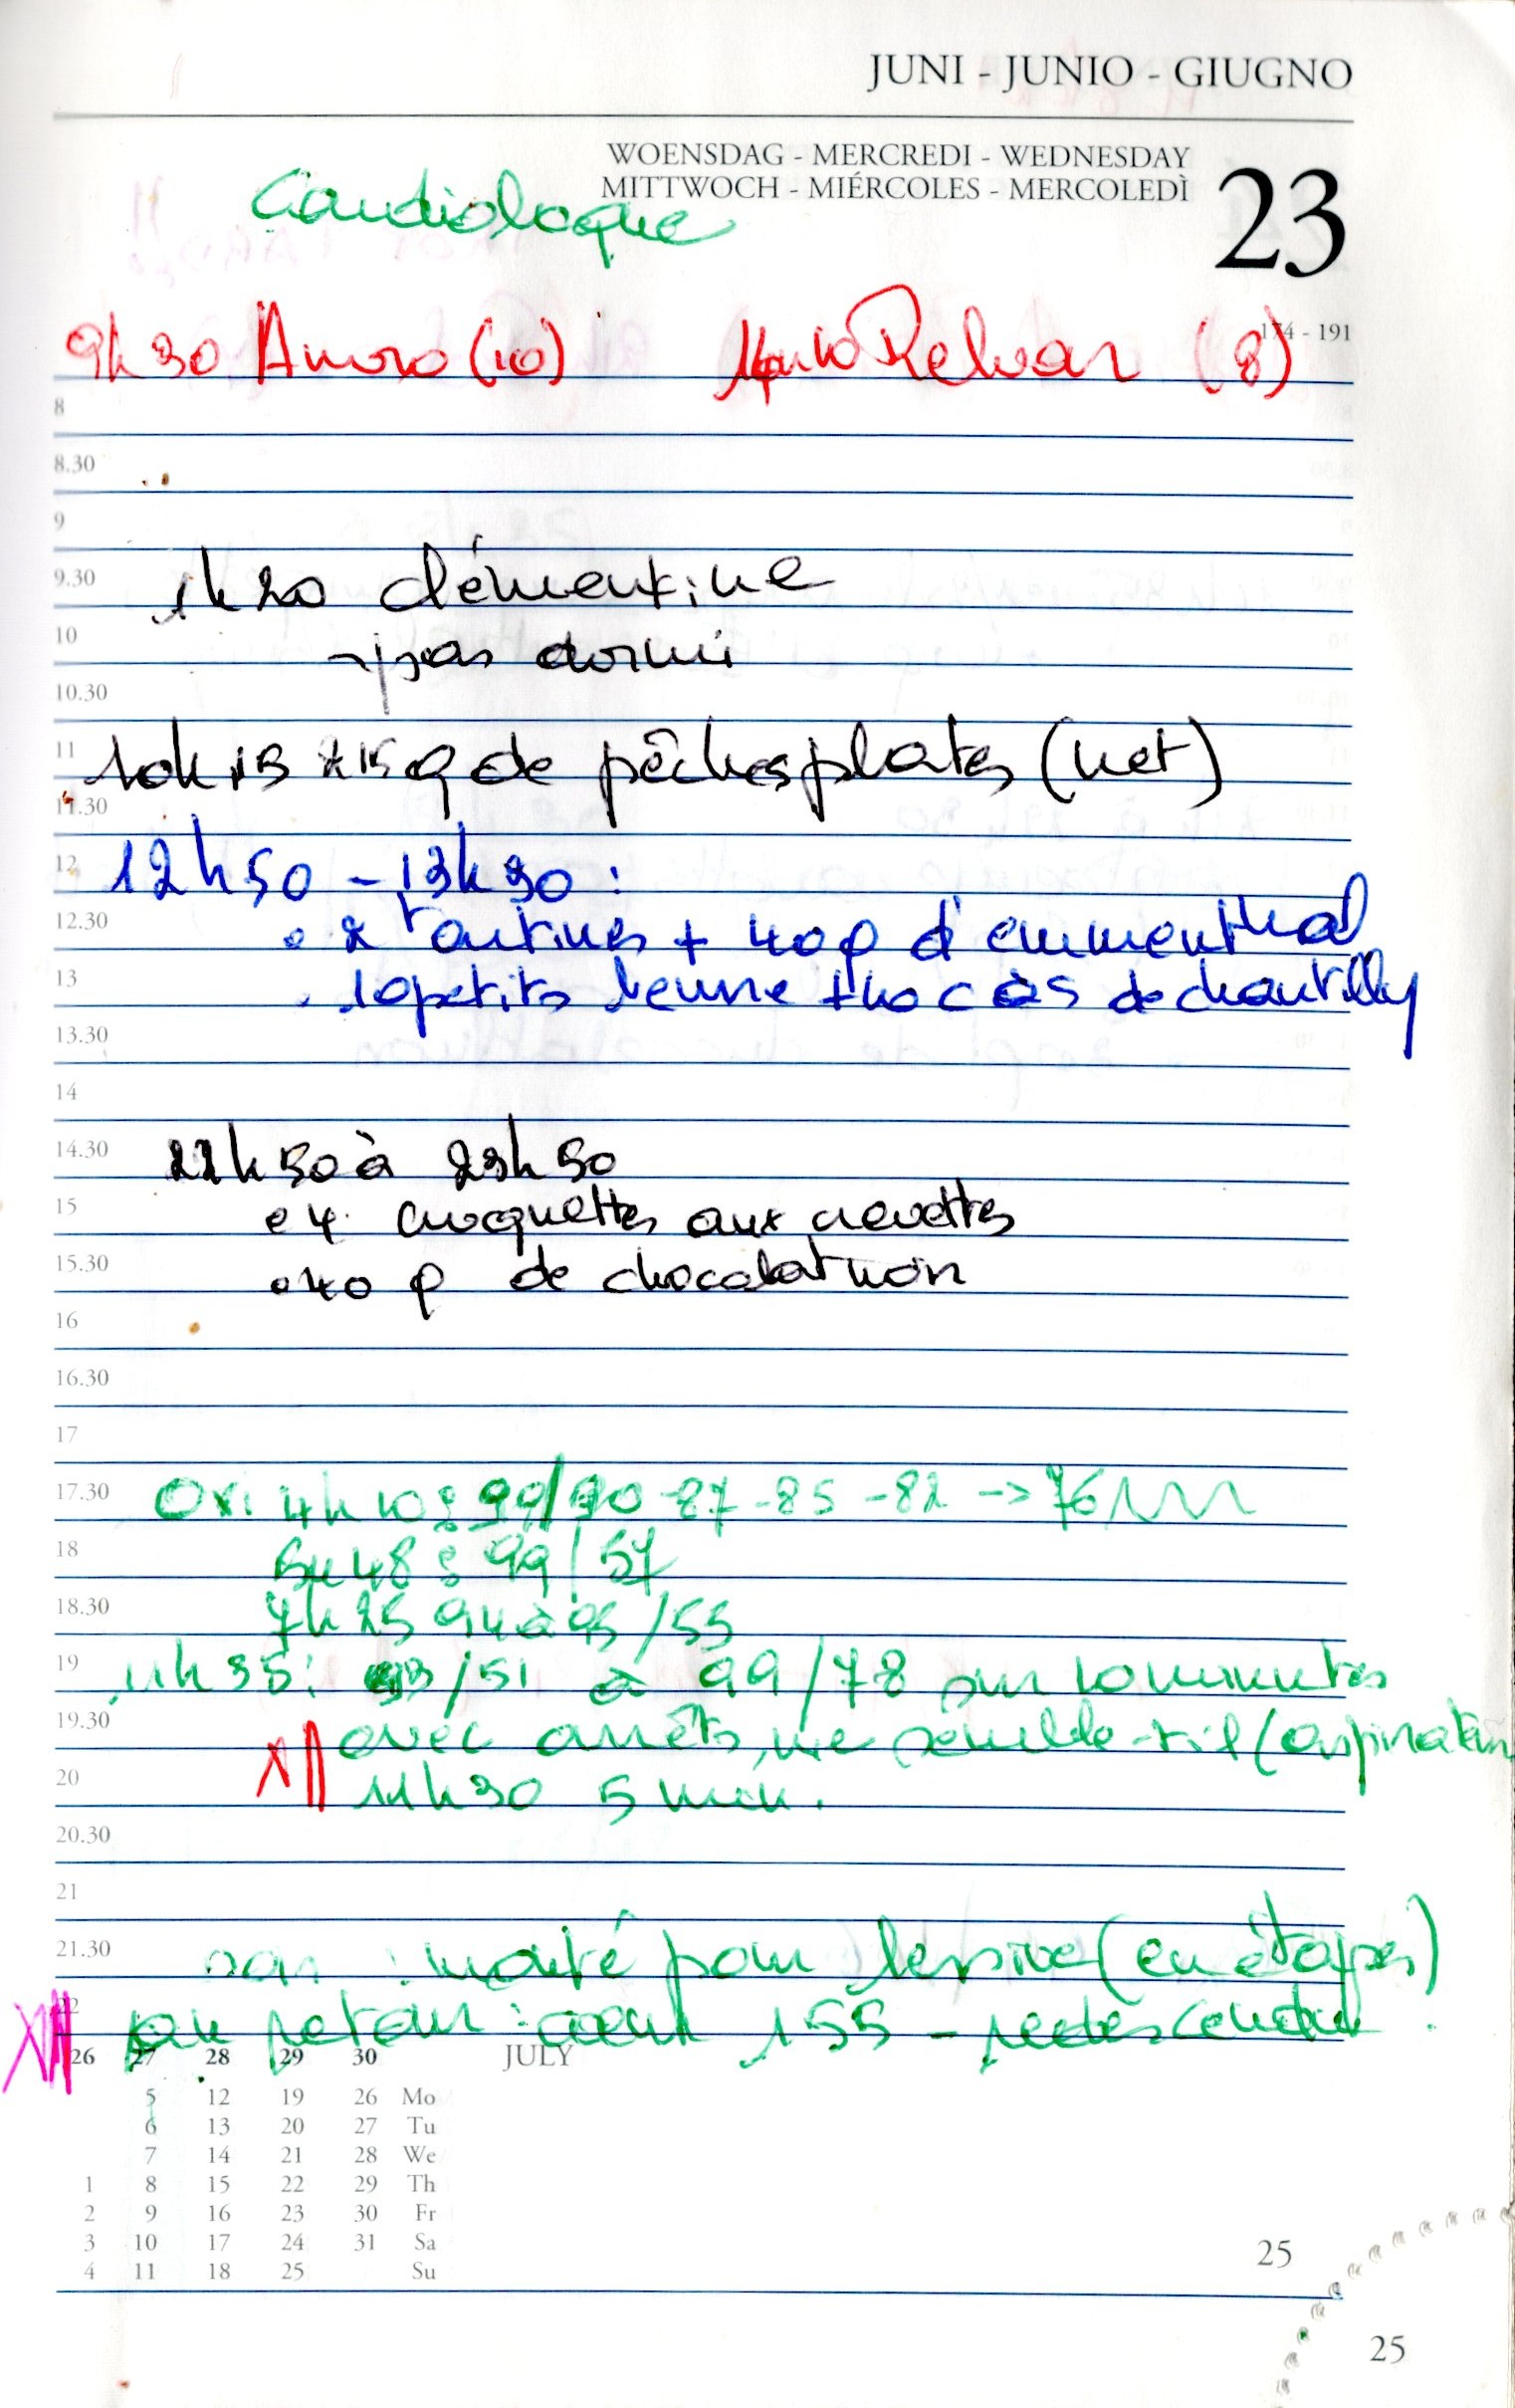 JUNI - JUNIO - GIUGNO
WOENSDAG - MERCREDI - WEDNESDAY
MITTWOCH - MIÉRCOLES - MERCOLEDÌ
23
Cardiologue
174 - 191
9h30 (10) (8)
8
8.30
9
9.30 1h20 clémentine
10 pas dormi
10.30
11 10h15 g de pêches plates (net)
11.30
12 12h50 - 13h30 :
12.30 2 tartines + 40g d'emmenthal
13 10 petits beurre + 10 càs de chantilly
13.30
14
14.30 22h50 à 23h50
15 4 croquettes aux crevettes
15.30 40 g de chocolat noir
16
16.30
17
17.30 Oxi 4h10 : 99/90 -87 -85 -82 -> 76
18 5h48 : 99/57
18.30 7h25 94 à 95/55
19 11h35 : /51 à 99/78 sur 10 minutes
19.30 avec arrêts, me semble-t-il (aspiration
20 11h30 5 min.
20.30
21
21.30 monté pour lessive (en étapes)
22 au retour : coeur 155 - redescendu.
26 27 28 29 30 JULY
5 12 19 26 Mo
6 13 20 27 Tu
7 14 21 28 We
1 8 15 22 29 Th
2 9 16 23 30 Fr
3 10 17 24 31 Sa
4 11 18 25 Su
25
25